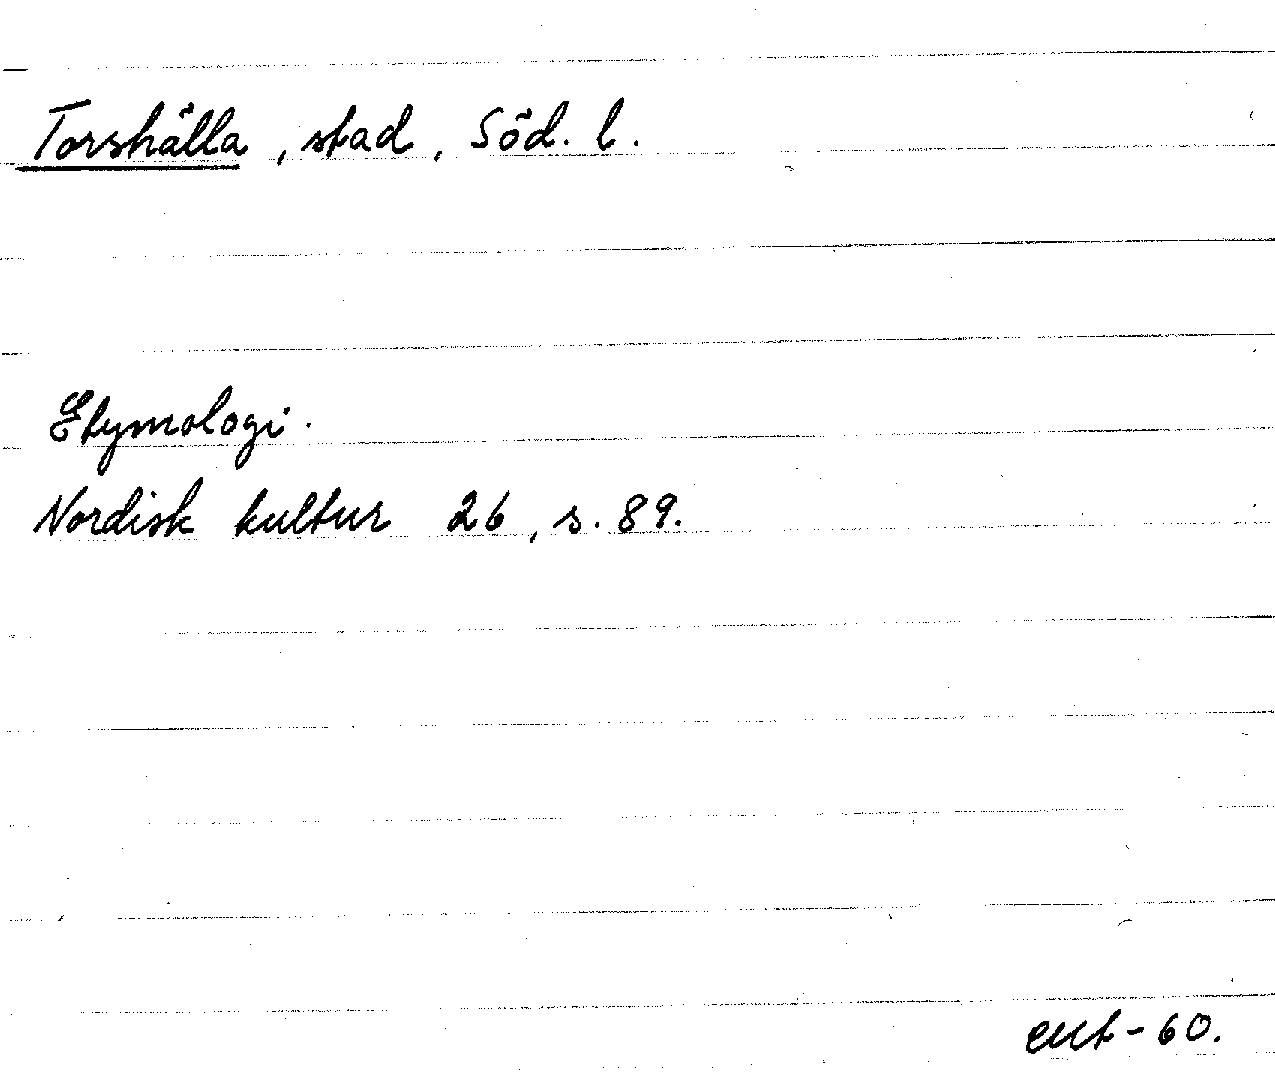 Torshälla, stad, Söd. l.
Etymologi.
Nordisk kultur 26, s. 89.
-60.